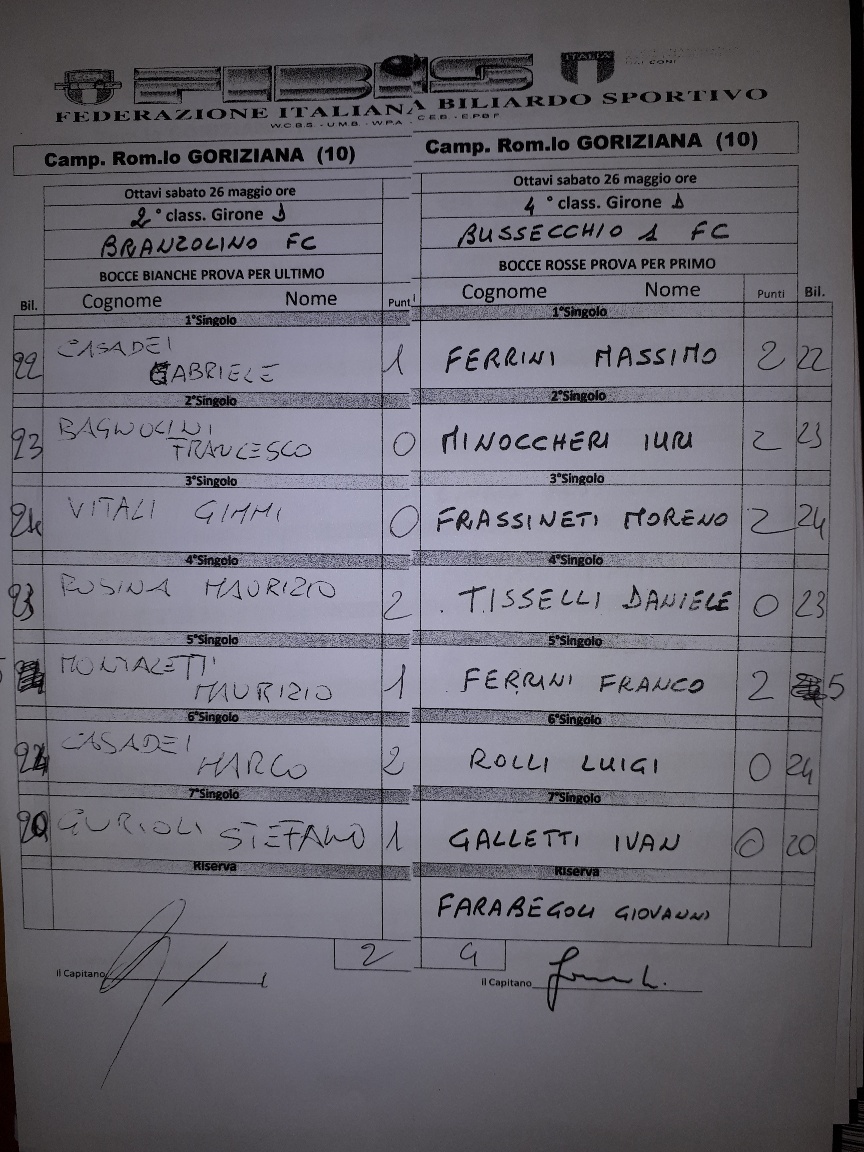 FIBiS
ITALIA
CONI
FEDERAZIONE ITALIANA BILIARDO SPORTIVO
W.C.B.S. - U.M.B. - W.P.A. - C.E.B. - E.P.B.F
Camp. Rom.lo GORIZIANA (10) Camp. Rom.lo GORIZIANA (10)
Ottavi sabato 26 maggio ore Ottavi sabato 26 maggio ore
2° class. Girone D 4° class. Girone D
BRANZOLINO FC BUSSECCHIO 1 FC
BOCCE BIANCHE PROVA PER ULTIMO BOCCE ROSSE PROVA PER PRIMO
Bil. Cognome Nome Punti Cognome Nome Punti Bil.
1°Singolo 1°Singolo
22 CASADEI GABRIELE 1 FERRINI MASSIMO 2 22
2°Singolo 2°Singolo
23 BAGNOLINI FRANCESCO 0 MINOCCHERI IURI 2 23
3°Singolo 3°Singolo
24 VITALI GIMMI 0 FRASSINETI MORENO 2 24
4°Singolo 4°Singolo
23 ROSINA MAURIZIO 2 TISSELLI DANIELE 0 23
5°Singolo 5°Singolo
5 MONTALETTI MAURIZIO 1 FERRINI FRANCO 2 5
6°Singolo 6°Singolo
24 CASADEI MARCO 2 ROLLI LUIGI 0 24
7°Singolo 7°Singolo
20 GURIOLI STEFANO 1 GALLETTI IVAN 0 20
Riserva Riserva
FARABEGOLI GIOVANNI
2 4
il Capitano il Capitano